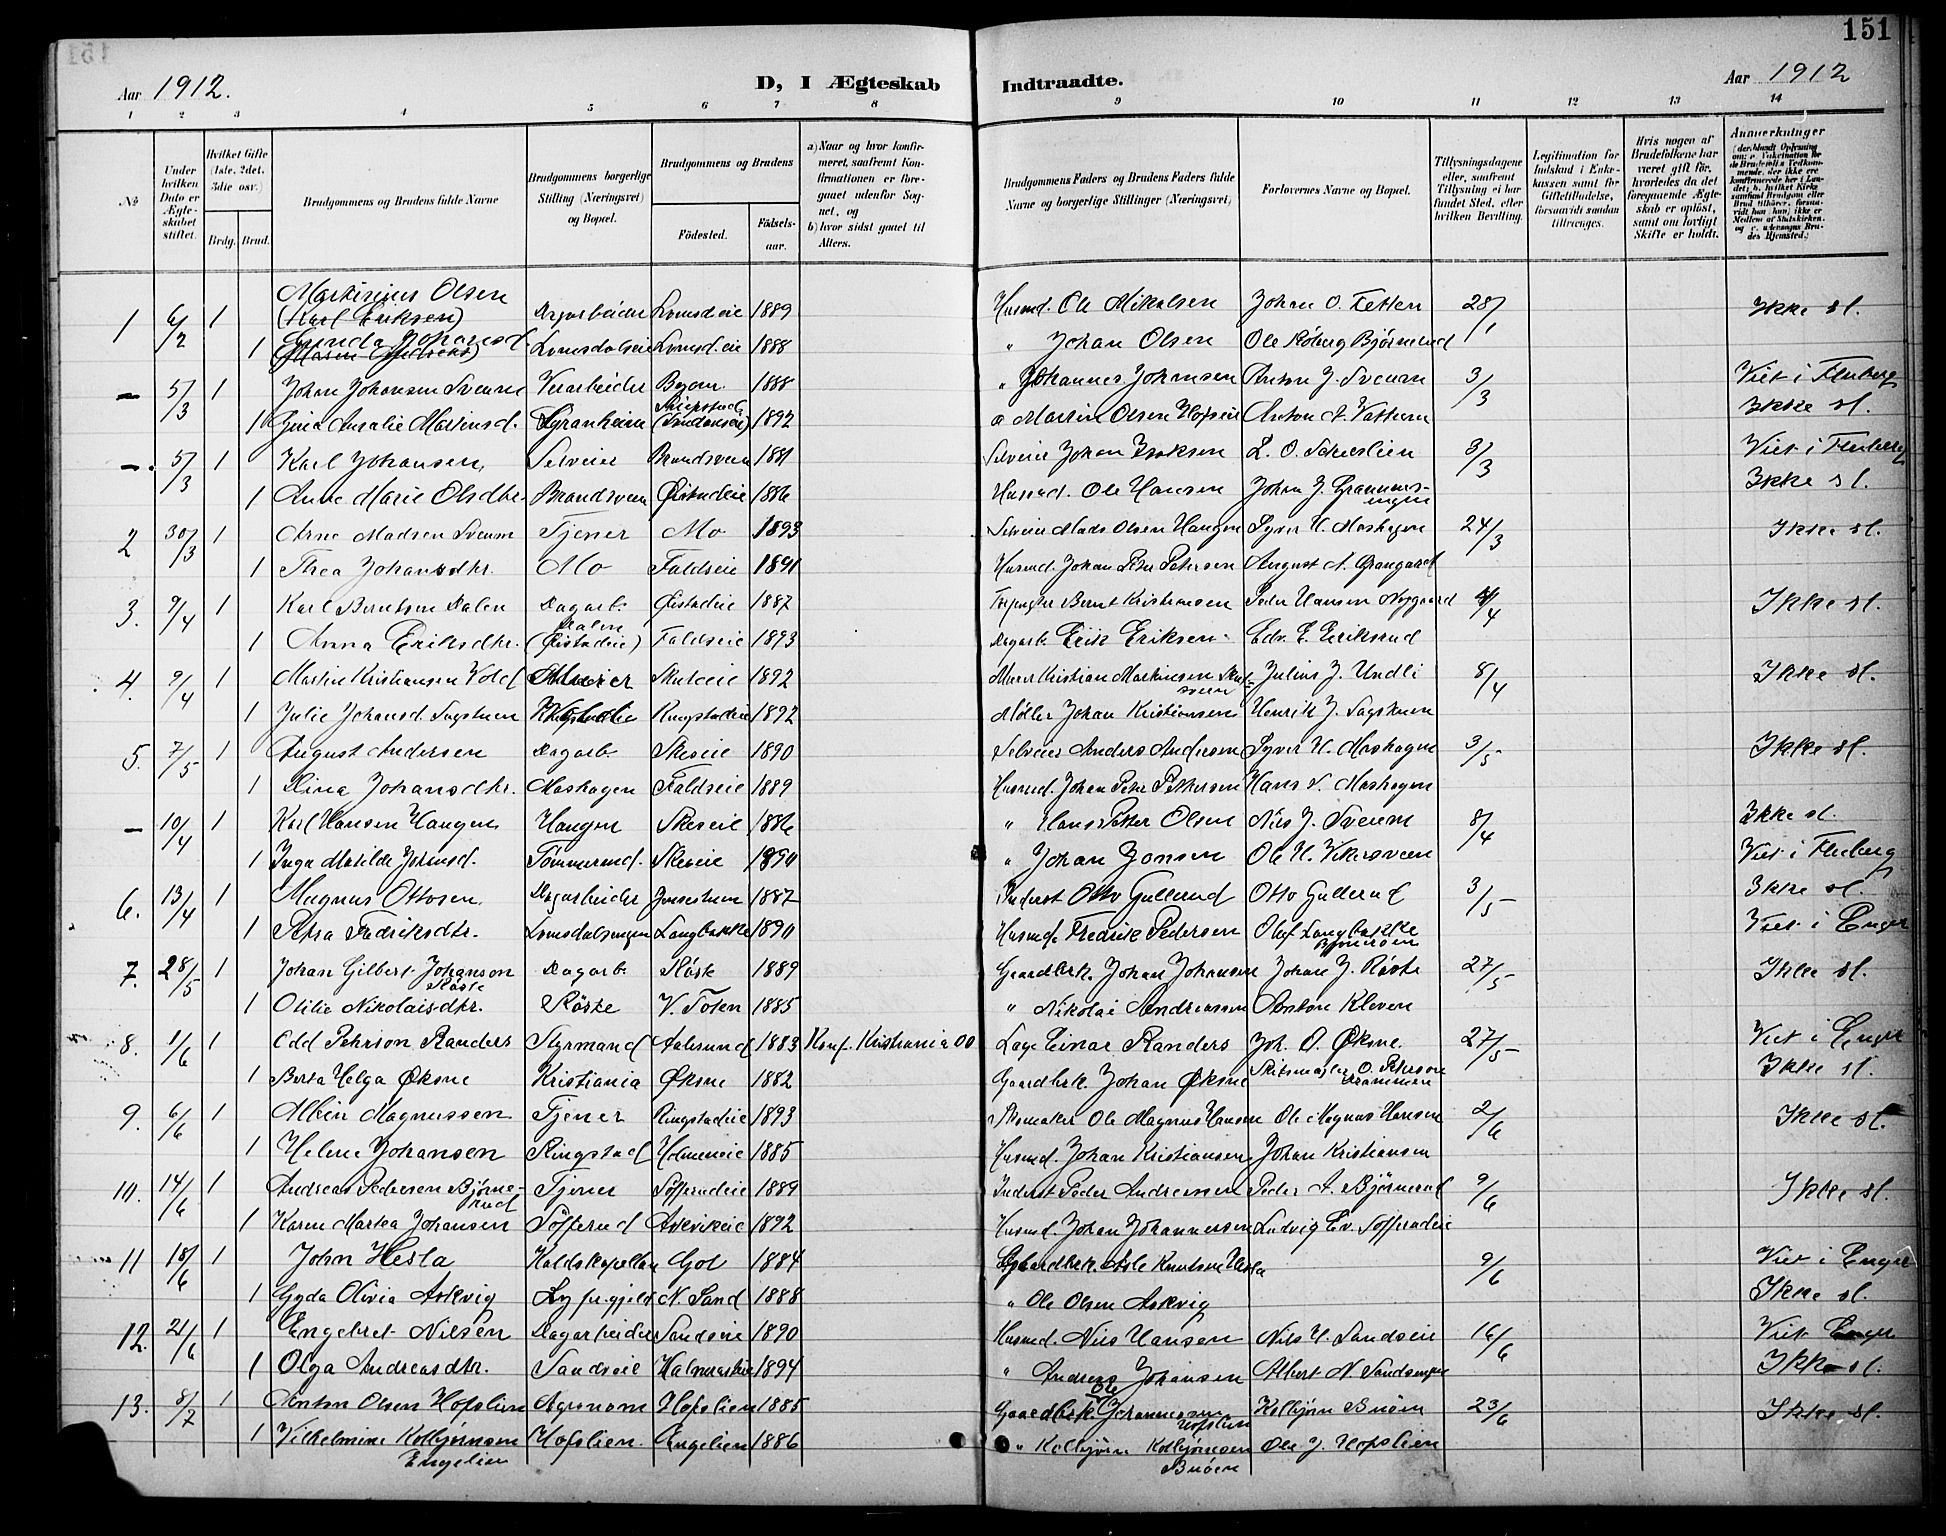 151
Aar 1912.
D, I Ægteskab Indtraadte.
Aar 1912
1 2 3 4 5 6 7 8 9 10 11 12 13 14
№
Under hvilken Dato er Ægteskabet stiftet.
Hvilket Gifte (1ste, 2det, 3die osv.)
Brdg. Brud.
Brudgommens og Brudens fulde Navne
Brudgommens borgerlige Stilling (Næringsvei) og Bopæl.
Brudgommens og Brudens
Fødested.
Fødselsaar.
a) Naar og hvor konfirmeret, saafremt Konfirmationen er foregaaet udenfor Sognet, og
b) hvor sidst gaaet til Alters.
Brudgommens Faders og Brudens Faders fulde Navne og borgerlige Stillinger (Næringsvei)
Forlovernes Navne og Bopæl.
Tillysningsdagene eller, saafremt Tillysning ei har fundet Sted, efter hvilken Bevilling.
Legitimation for Indskud i Enkekassen samt for Giftetilladelse, forsaavidt saadan tiltrænges.
Hvis nogen af Brudefolkene har været gift før, hvorledes da det foregaaende Ægteskab er opløst, samt om lovligt Skifte er holdt.
Anmerkninger
1 6/2 1 Martinius Olsen (Karl Eriksen) Dagarbeider Lomsdeie 1889 Husmd. Ole Mikalsen Johan O. Fetten 28/1 Ikke sl.
1 Gunda Johansd. Lomsdalseie Lomsd.eie 1888 " Johan Olsen Ole Røberg Bjørnerud
— 5/3 1 Johan Johansen Sveum Veiarbeider 1888 " Johannes Johansen Anton J. Sveum 3/3 Viet i Fluberg
1 Gina Amalie Martinsd. 1892 Martin Olsen Anton A. Ikke sl.
—. 5/3 1 Karl Johansen Selveier Brandsveen 1881 Selveier Johan Isaksen L. O. 3/3 Viet i Fluberg
1 Anne Marie Olsdtr. Brandsveen Øistadeie 1886 Husmd. Ole Hansen Johan J. Ikke sl.
2 30/3 1 Arne Madsen Sveum Tjener Mo 1893 Selveier Mads Olsen Haugen Syver H. Moshagen 24/3 Ikke sl.
1 Thea Johansdtr. Mo Faldseie 1891 Husmd. Johan Peter Petersen August A. Grangaard
3. 9/4 1 Karl Berntsen Dalen Dagarb. Øistadeie 1887 Bernt Kristiansen Peder Hansen Nygaard /4 Ikke sl.
1 Anna Eriksdtr. Dalen (Øistadeie) Faldseie 1893 Dagarb. Erik Eriksen Edv. E. Eriksrud
4. 9/4 1 Martin Kristiansen Vold 1892 Murer Kristian Martinsen Julius J. Undli 8/4 Ikke sl.
1 Julie Johansd. Sagstuen Ringstadeie 1892 Møller Johan Kristiansen Henrik J. Sagstuen
5. 7/5 1 August Andersen Dagarb. Skeseie 1890 Selveier Anders Andersen Syver H. Moshagen 3/5 Ikke sl.
1 Dina Johansdtr. Moshagen Faldseie 1889 Husmd. Johan Peter Pettersen Hans S. Moshagen
— 10/4 1 Karl Hansen Haugen Haugen Skeseie 1886 " Hans Petter Olsen Nils J. Sveum 8/4 Ikke sl.
1 Inga Matilde Johansd. Tømmerud. Skeseie 1890 " Johan Jonsen Ole H. Vikersveen Viet i Fluberg
6. 13/4 1 Magnus Ottosen Dagarbeider 1887 Inderst Otto Gullerud Otto Gullerud 3/5 Ikke sl.
1 Petra Fredriksdtr. Lomsdalsengen Langbakke 1890 Husmd. Fredrik Pedersen Olaf Langbakke Viet i Enger
7. 28/5 1 Johan Gilbert Johanson Røste Dagarb. Røste 1889 Gaardbrk. Johan Johansen Johan J. Røste 27/5 Ikke sl.
1 Otilie Nikolaisdtr. Røste V. Toten 1885 " Nikolai Andreassen Anton Kleven
8. 1/6 1 Odd Petrson Randers Styrmand Aalesund 1883 Konf. Kristiania 00 Læge Einar Randers Joh. O. Øksne. 27/5 Viet i Enger
1 Berta Helga Øksne Kristiania Øksne 1882 Gaardbrk. Johan Øksne Skibsmægler O. Peterson Drammen Ikke sl.
9. 6/6 1 Albin Magnussen Tjener Ringstadeie 1893 Skomaker Ole Magnus Hansen Ole Magnus Hansen 2/6 Ikke sl.
1 Helene Johansen Ringstad Holmeneie 1885 Husmd. Johan Kristiansen Johan Kristiansen
10. 14/6 1 Andreas Pedersen Bjørnerud Tjener Søfferudeie 1889 Inderst Peder Andreassen Peder A. Bjørnerud 9/6 Ikke sl.
1 Karen Marka Johansen Søfferud Askvikeie 1892 Husmd. Johan Johannessen Ludvig Ev. Søfferudeie
11 18/6 1 John Hesla Kaldskapellan Gol 1884 Gaardbrk. Asle Knutsen Hesla 9/6 Viet i Enger
1 Gyda Olivia Askvig N. Land 1888 " Ole Olsen Askvig Ikke sl.
12. 21/6 1 Engebret Nilsen Dagarbeider Sandseie 1890 Husmd. Nils Hansen Nils H. Sandseie 16/6 Viet Enger
1 Olga Andreasdtr. Sandseie 1894 " Andreas Johansen Albert N. Sandsengen Ikke sl.
13. 8/7 1 Anton Olsen Hofslien Agronom Hofslien 1885 Gaardbrk. Ole Johannessen Hofslien Kolbjørn Buøen 23/6 Ikke sl.
1 Vilhelmine Kolbjørnsen Engelien Hofslien. Engelien 1886 " Kolbjørn Kolbjørnsen Buøen Ole J. Hofslien